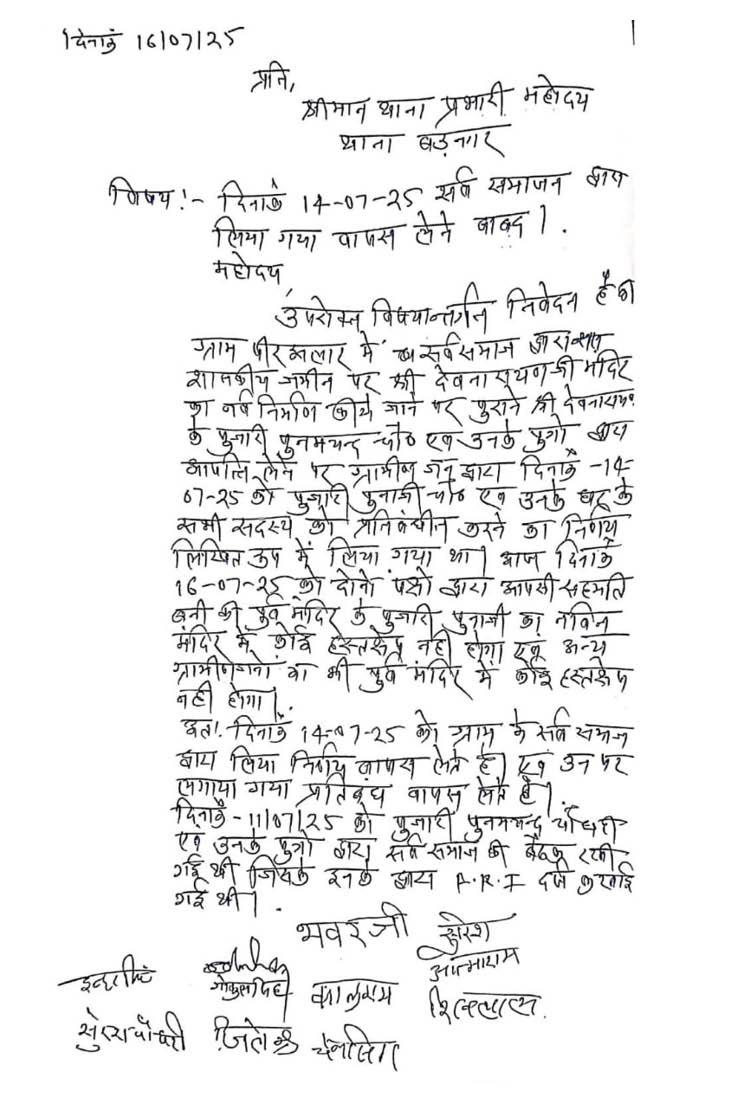 दिनाकं 16/07/25
1
प्रति,
श्रीमान थाना प्रभारी महोदय
थाना बड़नगर
विषय:- दिनाकं 14-07-25 सर्व समाजन द्वारा
लिया गया वापस लेने बाबद।
महोदय,
उपरोक्त विषयान्तर्गत निवेदन है की
ग्राम पीरझलार में सर्व समाज द्वारा
शासकीय जमीन पर श्री देवनारायण जी मंदिर
का नवं निर्माण कीये जाने पर पुराने श्री देवनारायण
के पुजारी पुनमचन्द चौ० एवं उनके पुत्रो द्वारा
आपत्ति लेने पर ग्रामीण जन द्वारा दिनाकं -14-
07-25 को पुजारी पुनाजी चौ० एवं उनके घर के
सभी सदस्य को प्रतिबंधीत करने का निर्णय
लिखित रुप में लिया गया था। आज दिनाकं
16-07-25 को दोनो पक्षो द्वारा आपसी सहमति
बनी की पुर्व मंदिर के पुजारी पुनाजी का नविन
मंदिर में कोई हस्तक्षेप नही होगा एवं अन्य
ग्रामीणगनो का भी पुर्व मंदिर में कोई हस्तक्षेप
नही होगा।
अतः दिनाकं 14-07-25 को ग्राम के सर्व समाज
द्वारा लिया निर्णय वापस लेते है। एवं उन पर
लगाया गया प्रतिबंध वापस लेते है।
दिनाकं - 11/07/25 को पुजारी पुनमचन्द चौधरी
एवं उनके पुत्रो द्वारा सर्व समाज की बैठक रखी
गई थी जिसके इनके द्वारा F.R.I दर्ज करवाई
गई थी।
भवरजी सुरेश
आत्माराम
गोकुलसिंह कालुराम शिवलाल
सुरेश चौधरी जितेन्द्र चैनसिंग